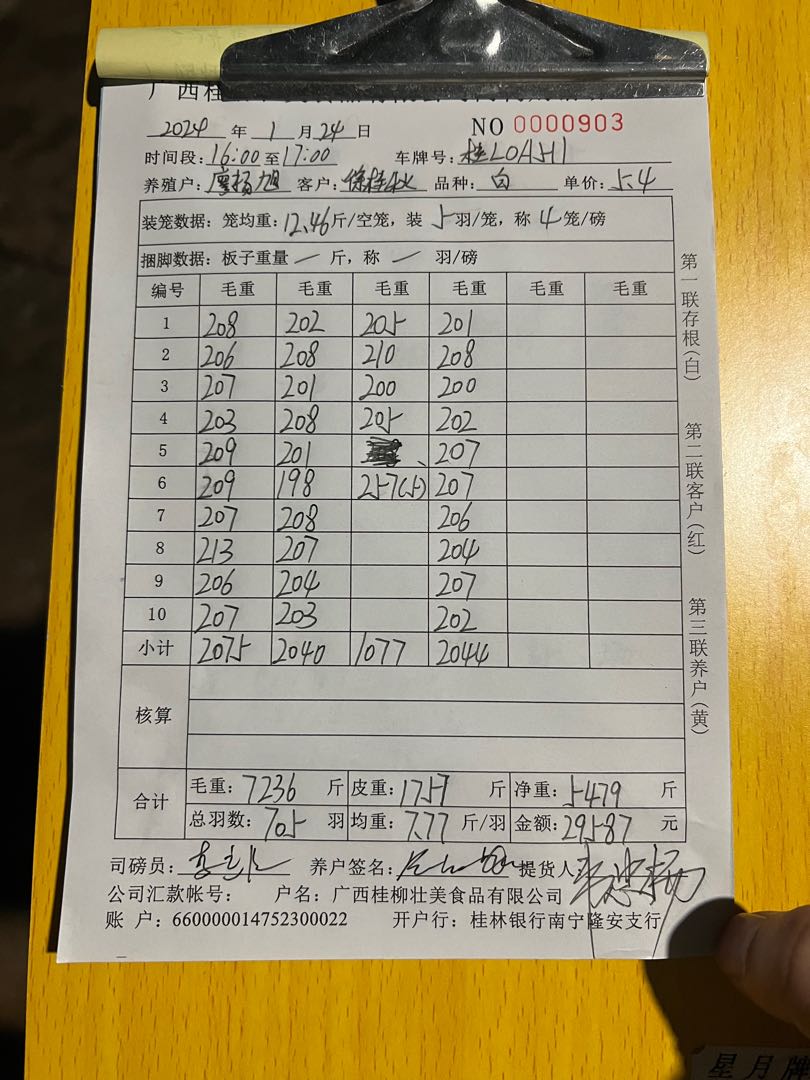 广西桂
2024 年 1 月 24 日 NO 0000903
时间段: 16:00 至 17:00 车牌号: 桂LOA511
养殖户: 廖杨旭 客户: 徐桂秋 品种: 白 单价: 5.4
装笼数据: 笼均重: 12.46 斤/空笼, 装 5 羽/笼, 称 4 笼/磅
捆脚数据: 板子重量 一 斤, 称 一 羽/磅
编号 毛重 毛重 毛重 毛重 毛重 毛重
1 208 202 205 201
2 206 208 210 208
3 207 201 200 200
4 203 208 205 202
5 209 201 207
6 209 198 257(5) 207
7 207 208 206
8 213 207 204
9 206 204 207
10 207 203 202
小计 2075 2040 1077 2044
核算
合计 毛重: 7236 斤 皮重: 1757 斤 净重: 5479 斤
总羽数: 705 羽 均重: 7.77 斤/羽 金额: 29587 元
司磅员: 养户签名: 提货人:
公司汇款帐号: 户名: 广西桂柳壮美食品有限公司
账 户: 660000014752300022 开户行: 桂林银行南宁隆安支行
第一联存根(白)
第二联客户(红)
第三联养户(黄)
星月牌